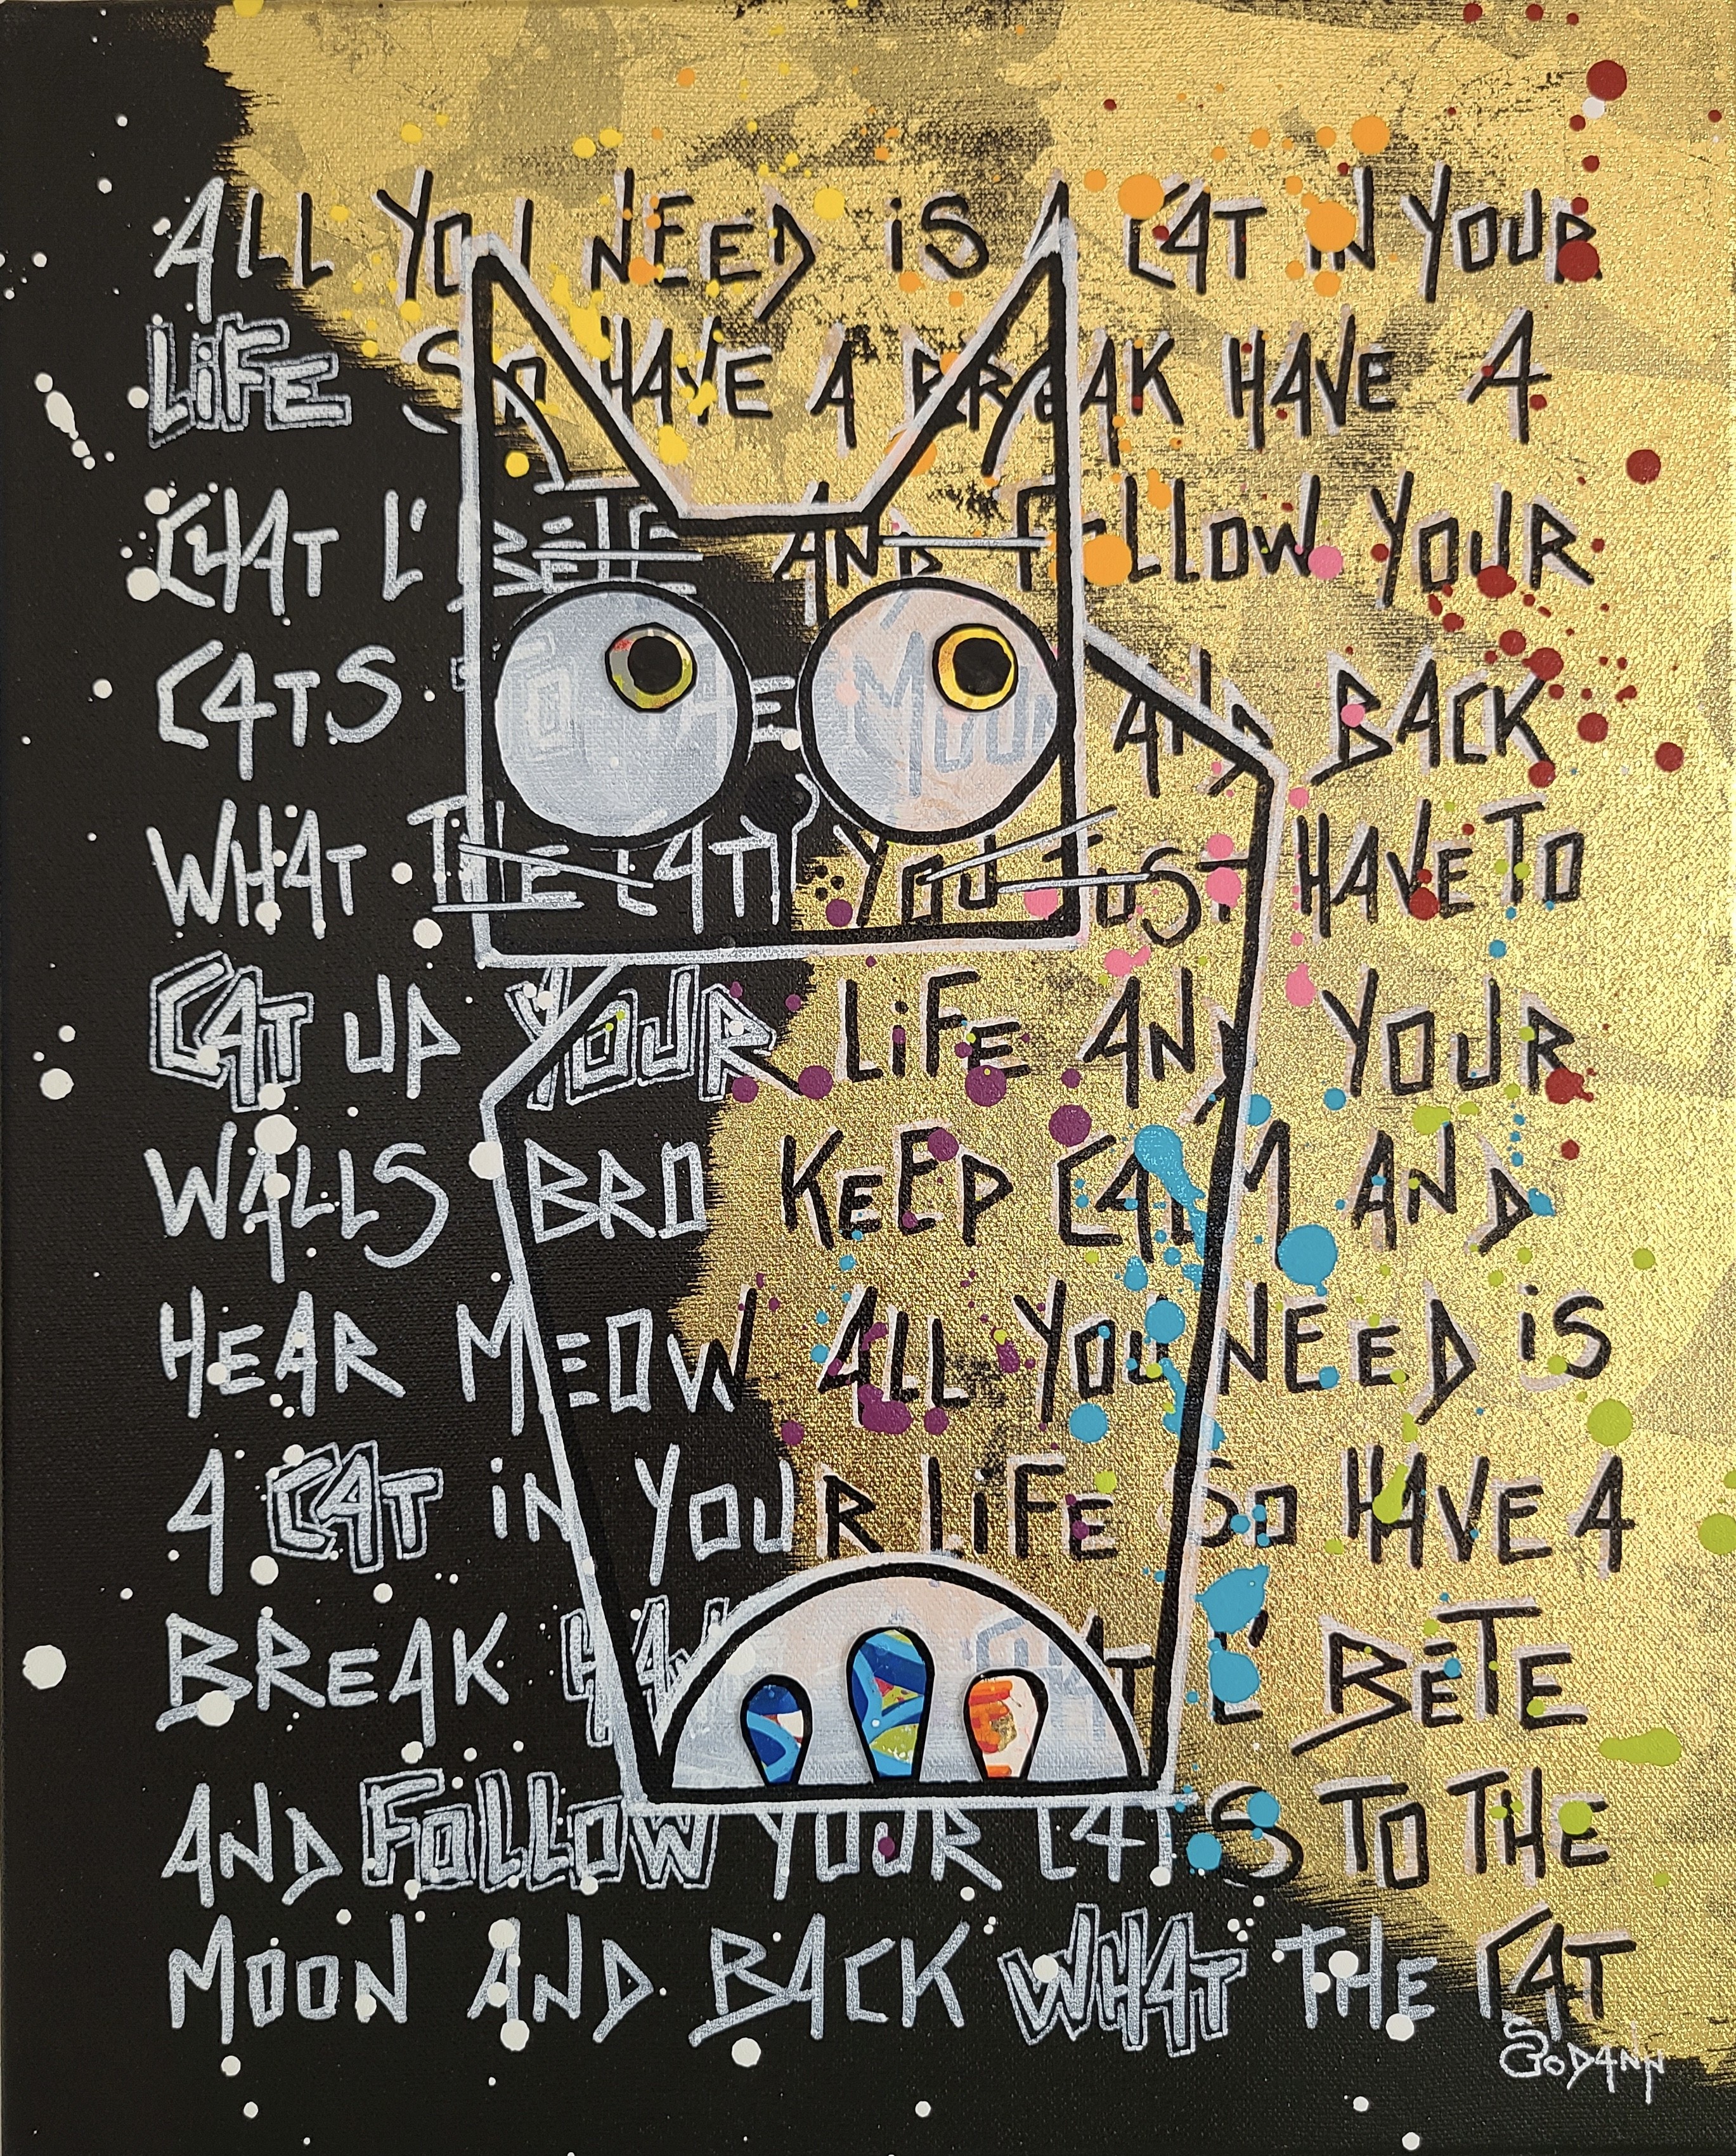 ALL YOU NEED iS A CAT IN YOUR
LiFE SO HAVE A BREAK HAVE A
CHAT L' BETE AND FOLLOW YOUR
CATS TO THE MOON AND BACK
WHAT THE CAT! YOU JUST HAVE TO
CAT UP YOUR LiFE AND YOUR
WALLS BRO KEEP CALM AND
HEAR MEOW ALL YOU NEED iS
A CAT iN YOUR LiFE SO HAVE A
BREAK HAVE A CHAT L' BETE
AND FOLLOW YOUR CATS TO THE
MOON AND BACK WHAT THE CAT
GODANN